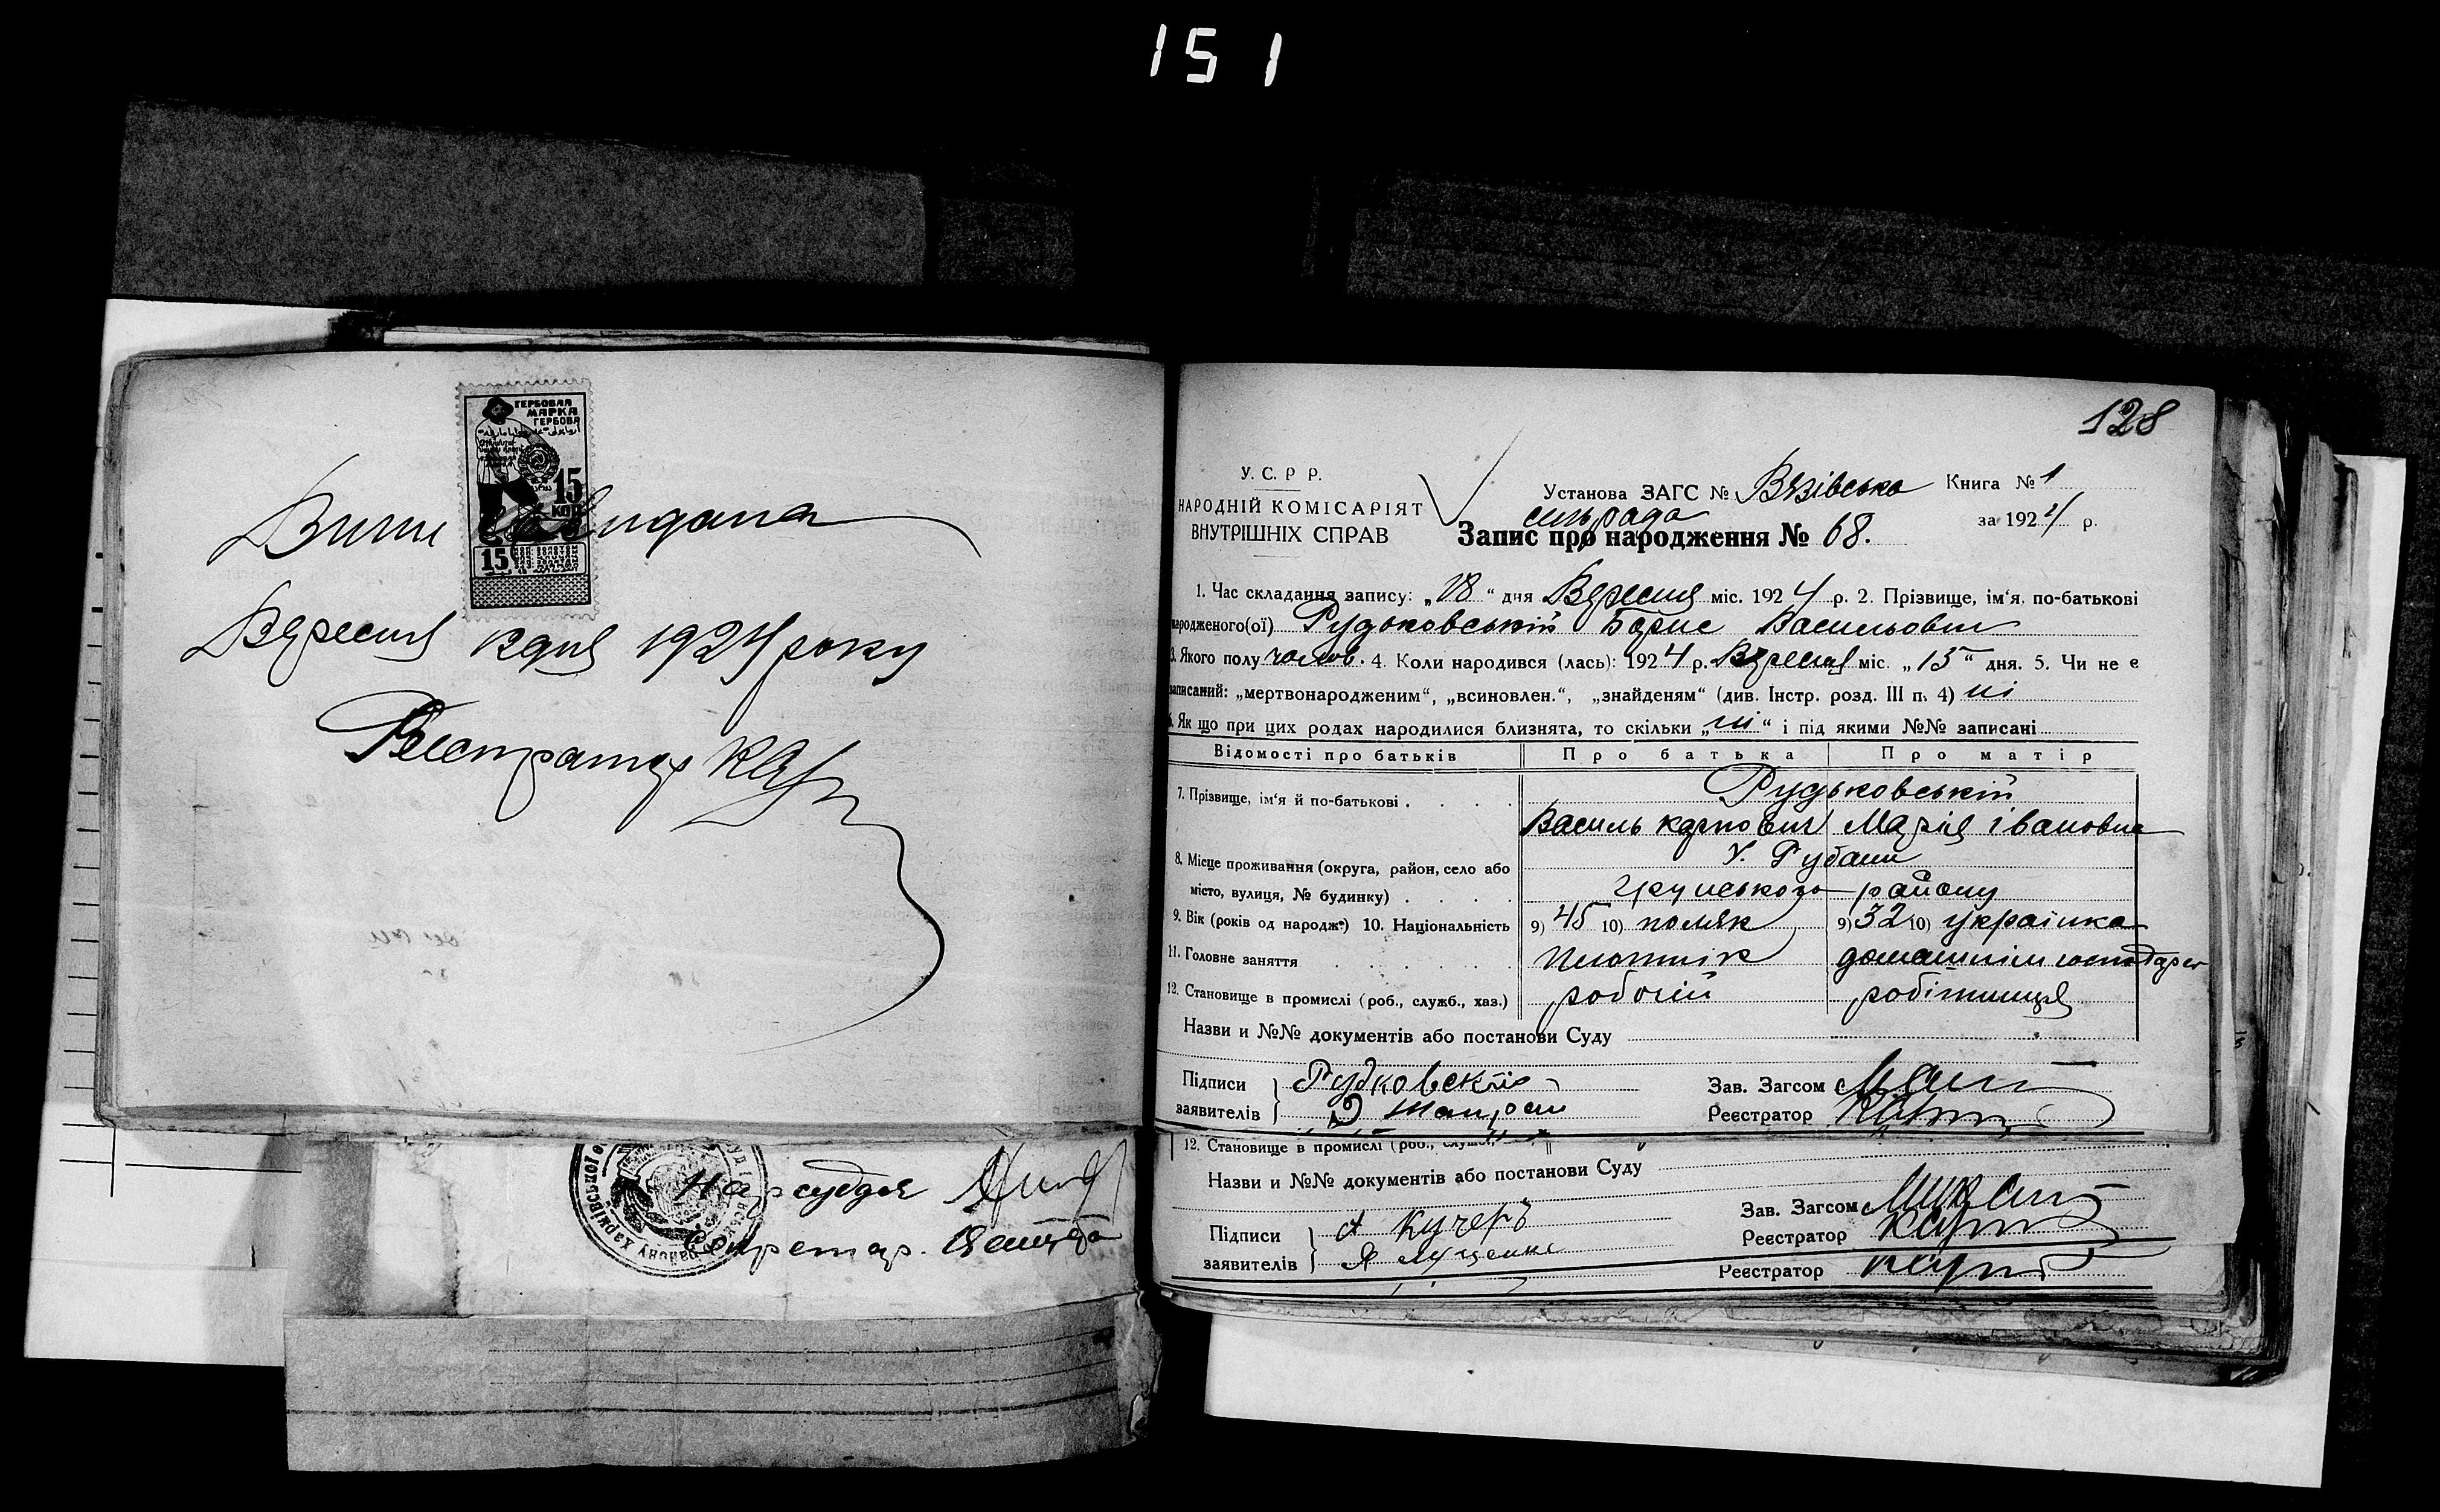 151
ГЕРБОВАЯ
МАРКА
ГЕРБОВА
15
КОП
15
Випис видана
Вересня 18 дня 1924 року
Реєстратор
Нарсуддя
Секретар
128
У. С. Р. Р.
НАРОДНІЙ КОМІСАРІЯТ
ВНУТРІШНІХ СПРАВ
Установа ЗАГС № Вязівська Книга № 1
сильрада за 1924 р.
Запис про народження № 68.
1. Час складання запису: „18“ дня Вересня міс. 1924 р. 2. Прізвище, ім‘я, по-батькові
народженого(ої) Рудьковській Борис Васильович
3. Якого полу чолов. 4. Коли народився (лась): 1924 р. Вересня міс. „15“ дня. 5. Чи не є
записаний: „мертвонародженим“, „всиновлен.“, „знайденям“ (див. Інстр. розд. III п. 4) ні
6. Як що при цих родах народилися близнята, то скільки „ні“ і під якими №№ записані
Відомості про батьків Про батька Про матір
7. Прізвище, ім‘я й по-батькові Рудьковській
Василь Карпович Марія Івановна
8. Місце проживання (округа, район, село або Х. Рубани
місто, вулиця, № будинку) Грунського району
9. Вік (років од народж.) 10. Національність 9) 45 10) поляк 9) 32 10) українка
11. Головне заняття плотнік домашнім господар
12. Становище в промислі (роб., служб., хаз.) робочій робітниця
Назви и №№ документів або постанови Суду
Підписи Рудковскій Зав. Загсом
заявителів Реєстратор
12. Становище в промислі (роб., служб.,
Назви и №№ документів або постанови Суду
Підписи А Кучеръ Зав. Загсом
заявителів Я Луценко Реєстратор
Реєстратор